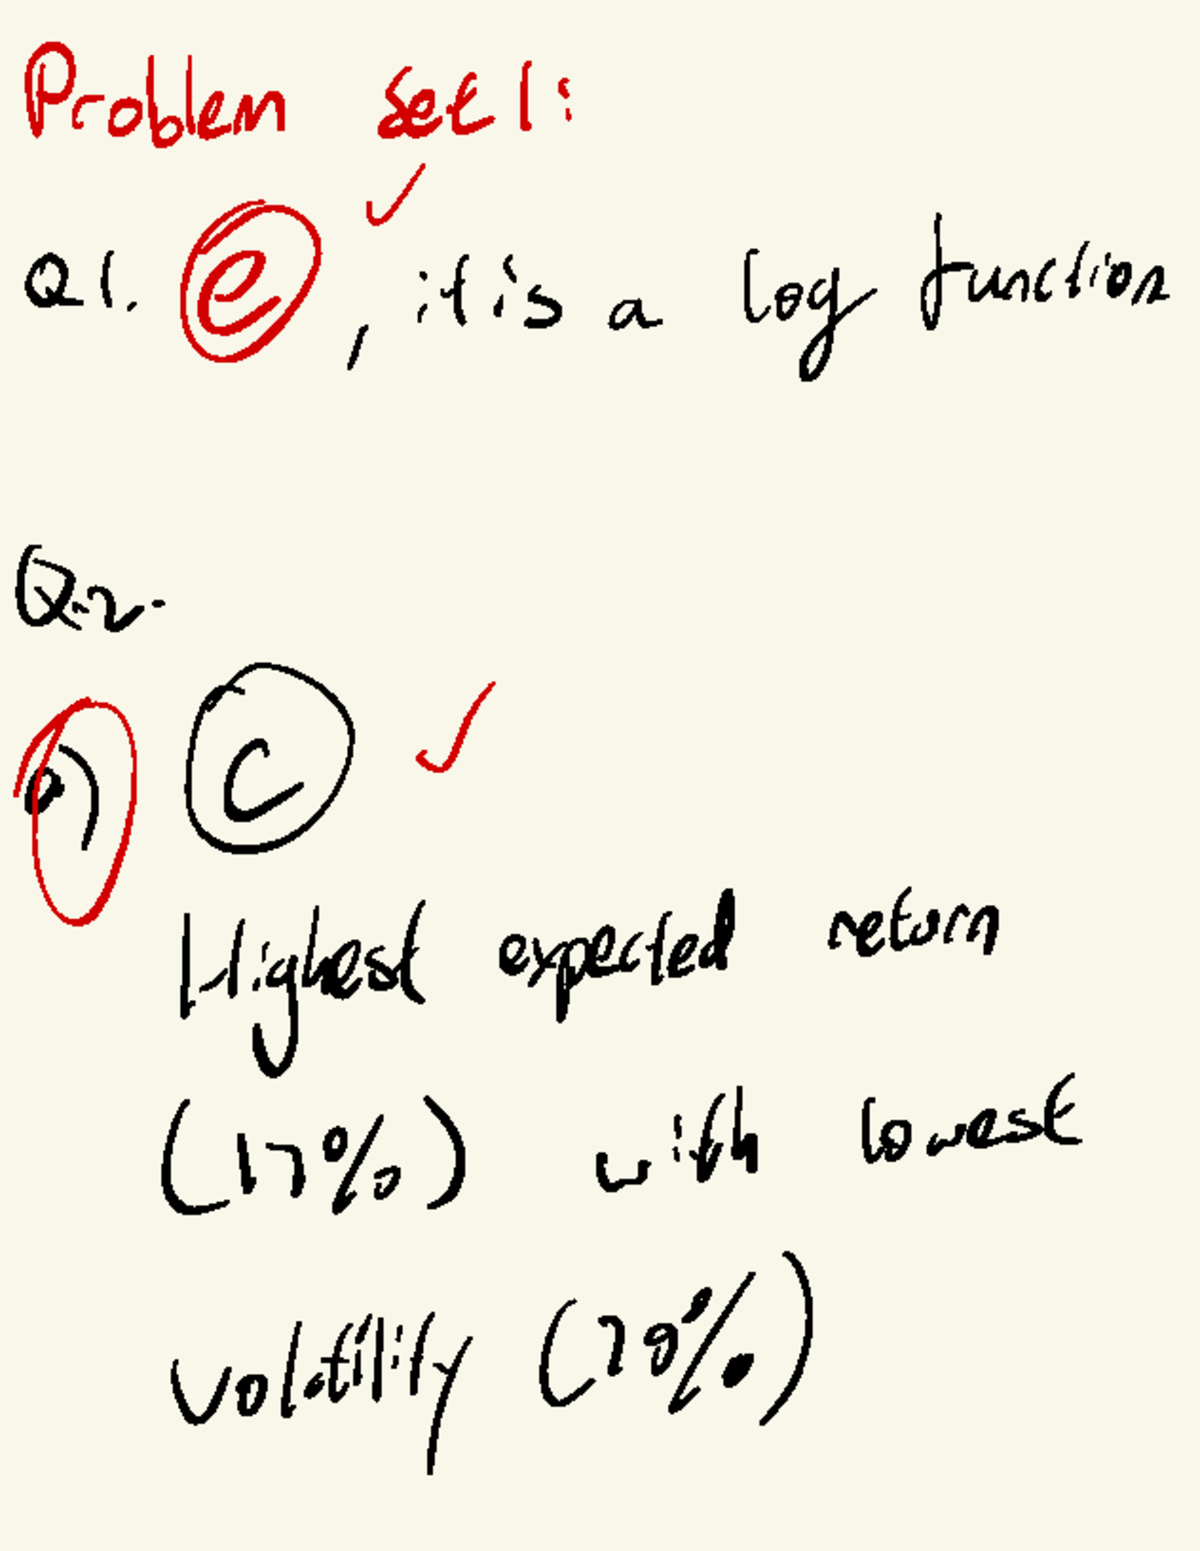 Problem set 1:
Q1. e, it is a log function
Q.2.
a) C
Highest expected return
(17%) with lowest
volatility (20%)